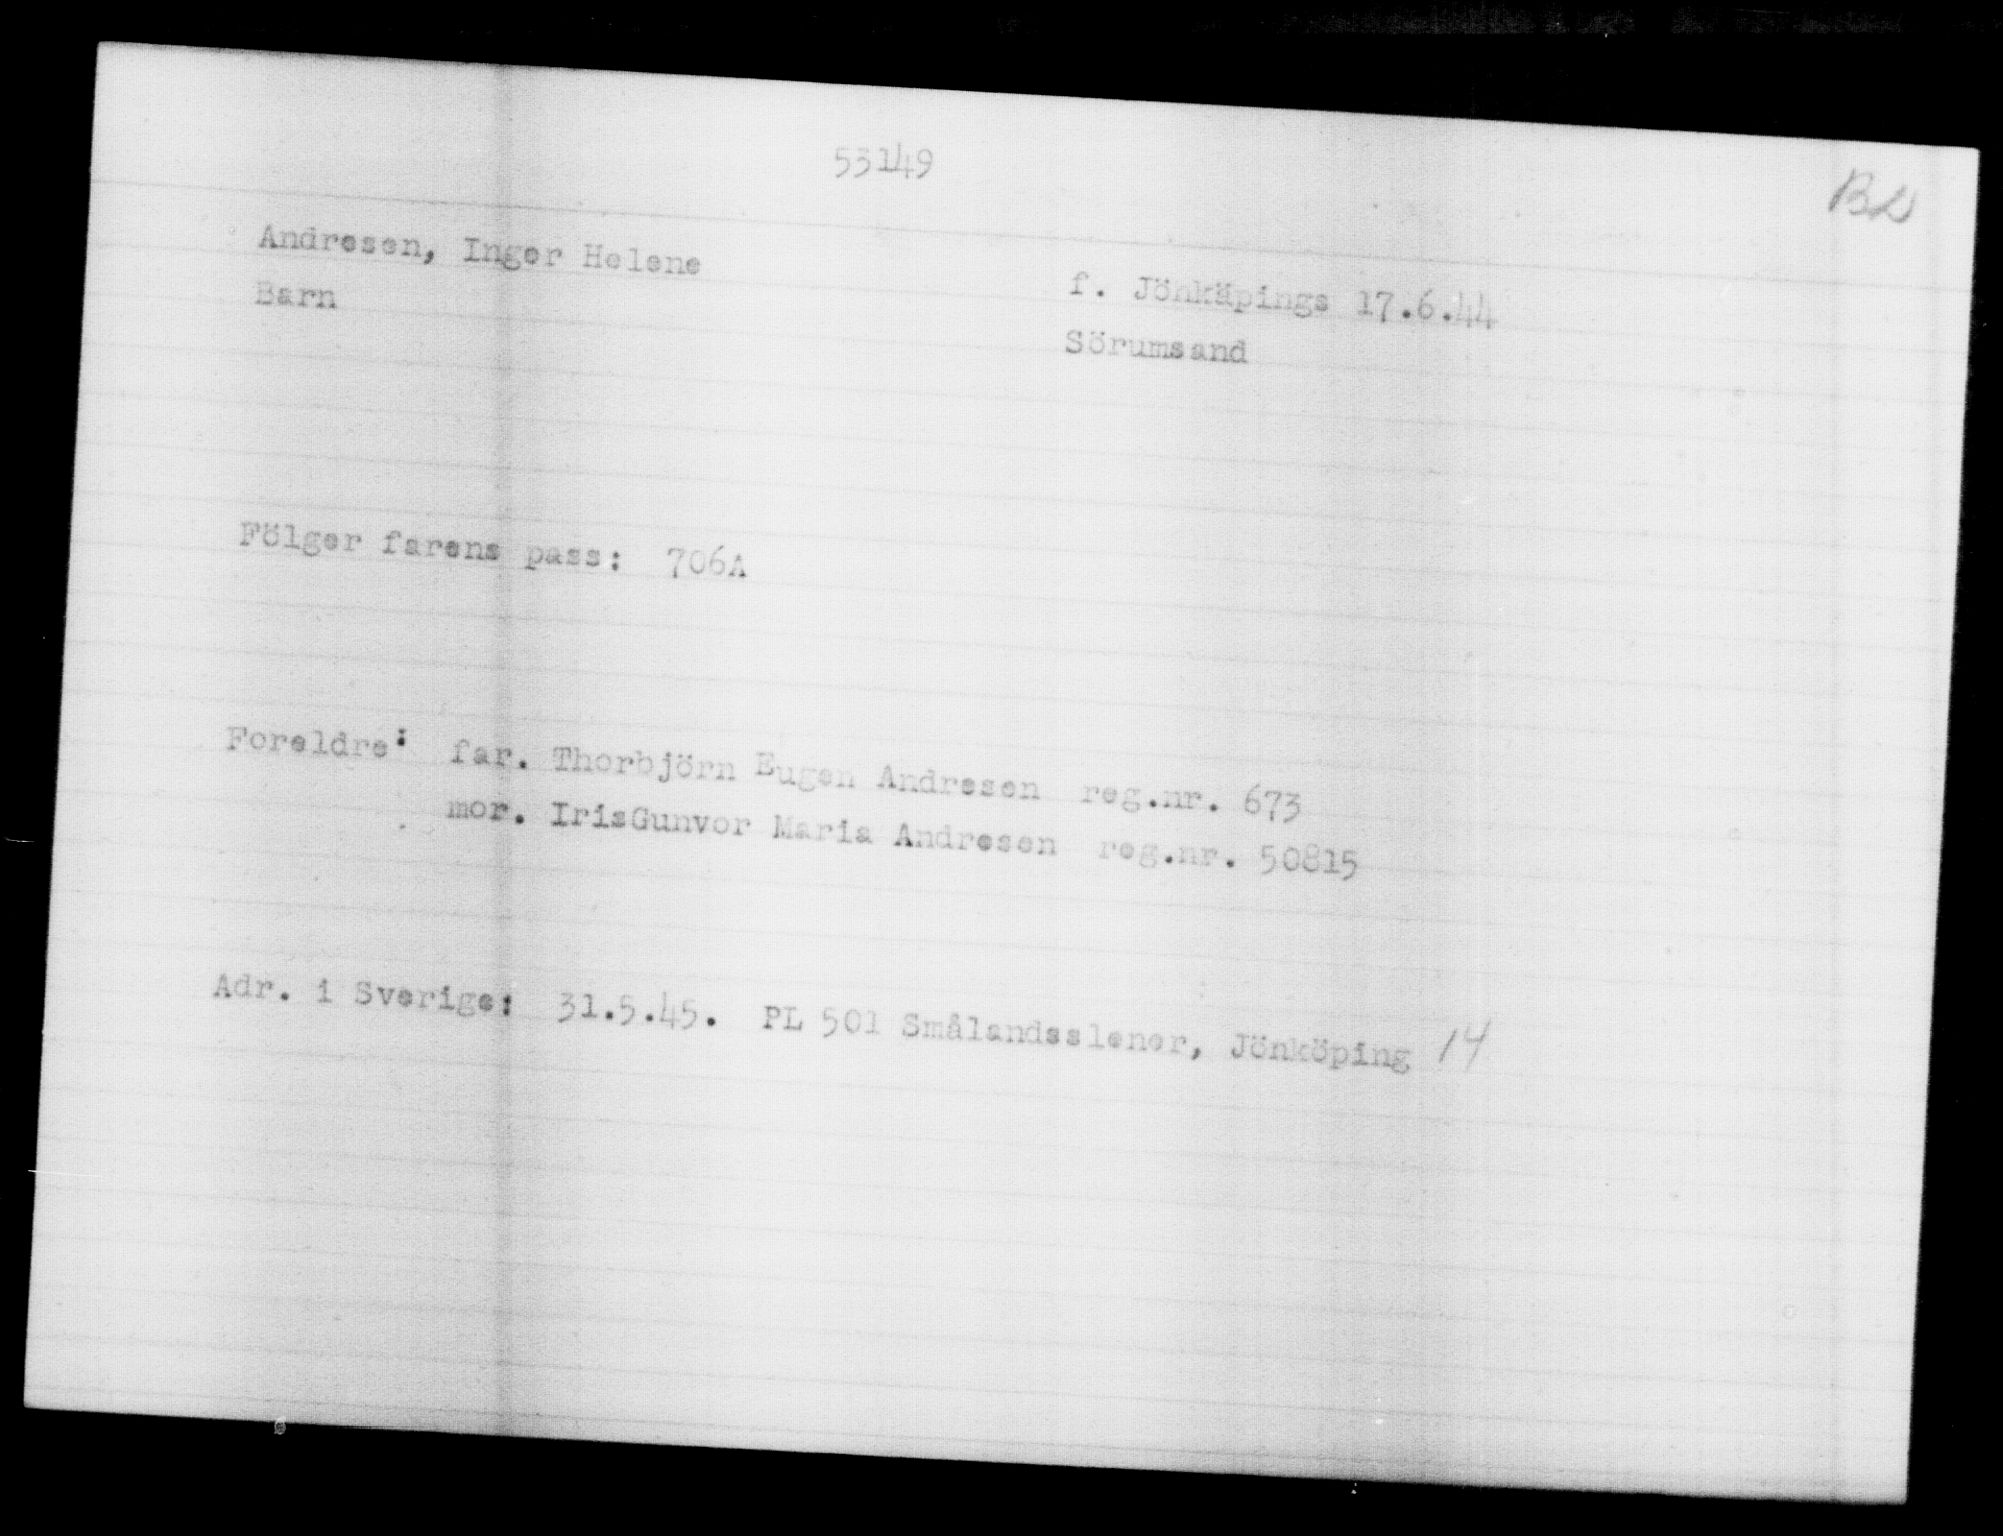 53149
BL
Andresen, Inger Helene
f. Jönkäpings 17.6.44
Barn
Sörumsand
Fölger farens pass: 706A
Foreldre: far. Thorbjörn Eugen Andresen reg.nr. 673
mor. IrisGunvor Maria Andresen reg.nr. 50815
Adr. i Sverige: 31.5.45. PL 501 Smålandsslener, Jönköping 14